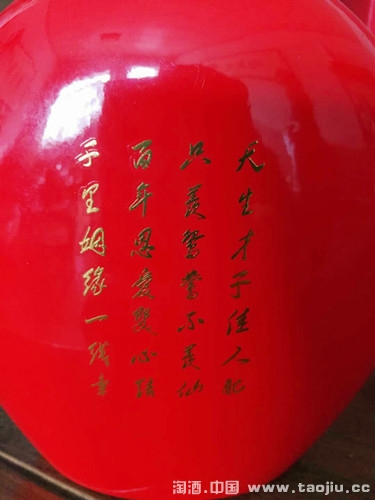 天生才子佳人配
只羡鸳鸯不羡仙
百年恩爱双心结
千里姻缘一线牵
淘酒.中国 www.taojiu.cc